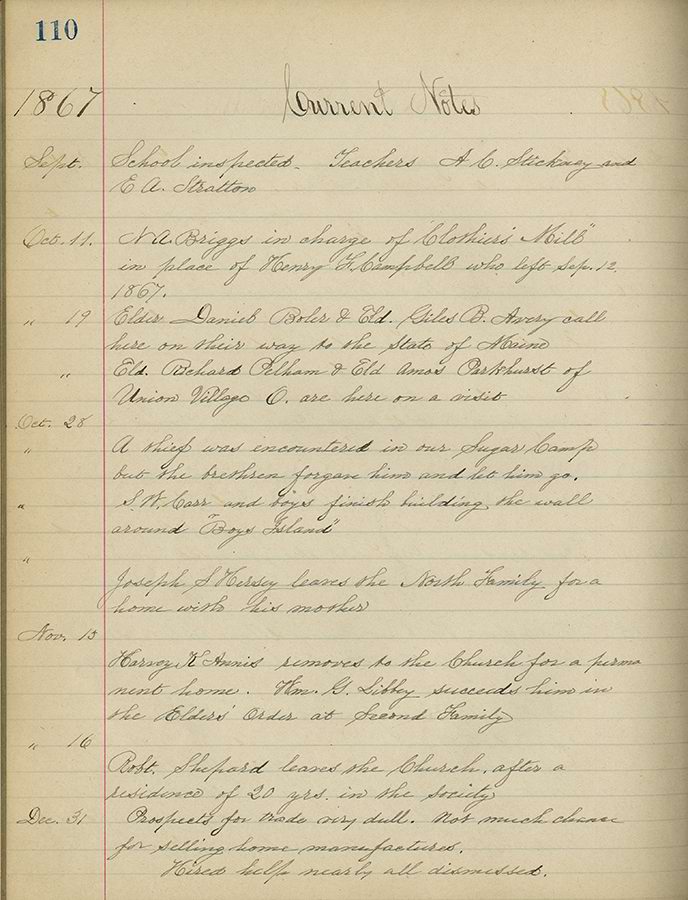 110
1867 Current Notes
Sept. School inspected. Teachers A. C. Stickney and
E A. Stratton
Oct. 11. N A Briggs in charge of "Clothier's Mill"
in place of Henry F. Campbell who left Sep. 12.
1867.
" 19 Elder Daniel Boler & Eld. Giles B. Avery call
here on their way to the State of Maine
" Eld. Richard Pelham & Eld Amos Parkhurst of
Union Village O. are here on a visit
Oct. 28
" A thief was encountered in our Sugar Camp
but the brethren forgave him and let him go.
" S. W. Carr and boys finish building the wall
around "Boys Island"
"
Joseph S Hersey leaves the North Family for a
home with his mother
Nov. 15
Harvey K Annis removes to the Church for a perma
nent home. Wm. G. Libbey succeeds him in
the Elders' Order at Second Family
" 16
Robt. Shepard leaves the Church, after a
residence of 20 yrs. in the society
Dec. 31 Prospects for trade very dull. Not much chance
for selling home manufactures.
Hired help nearly all dismissed.